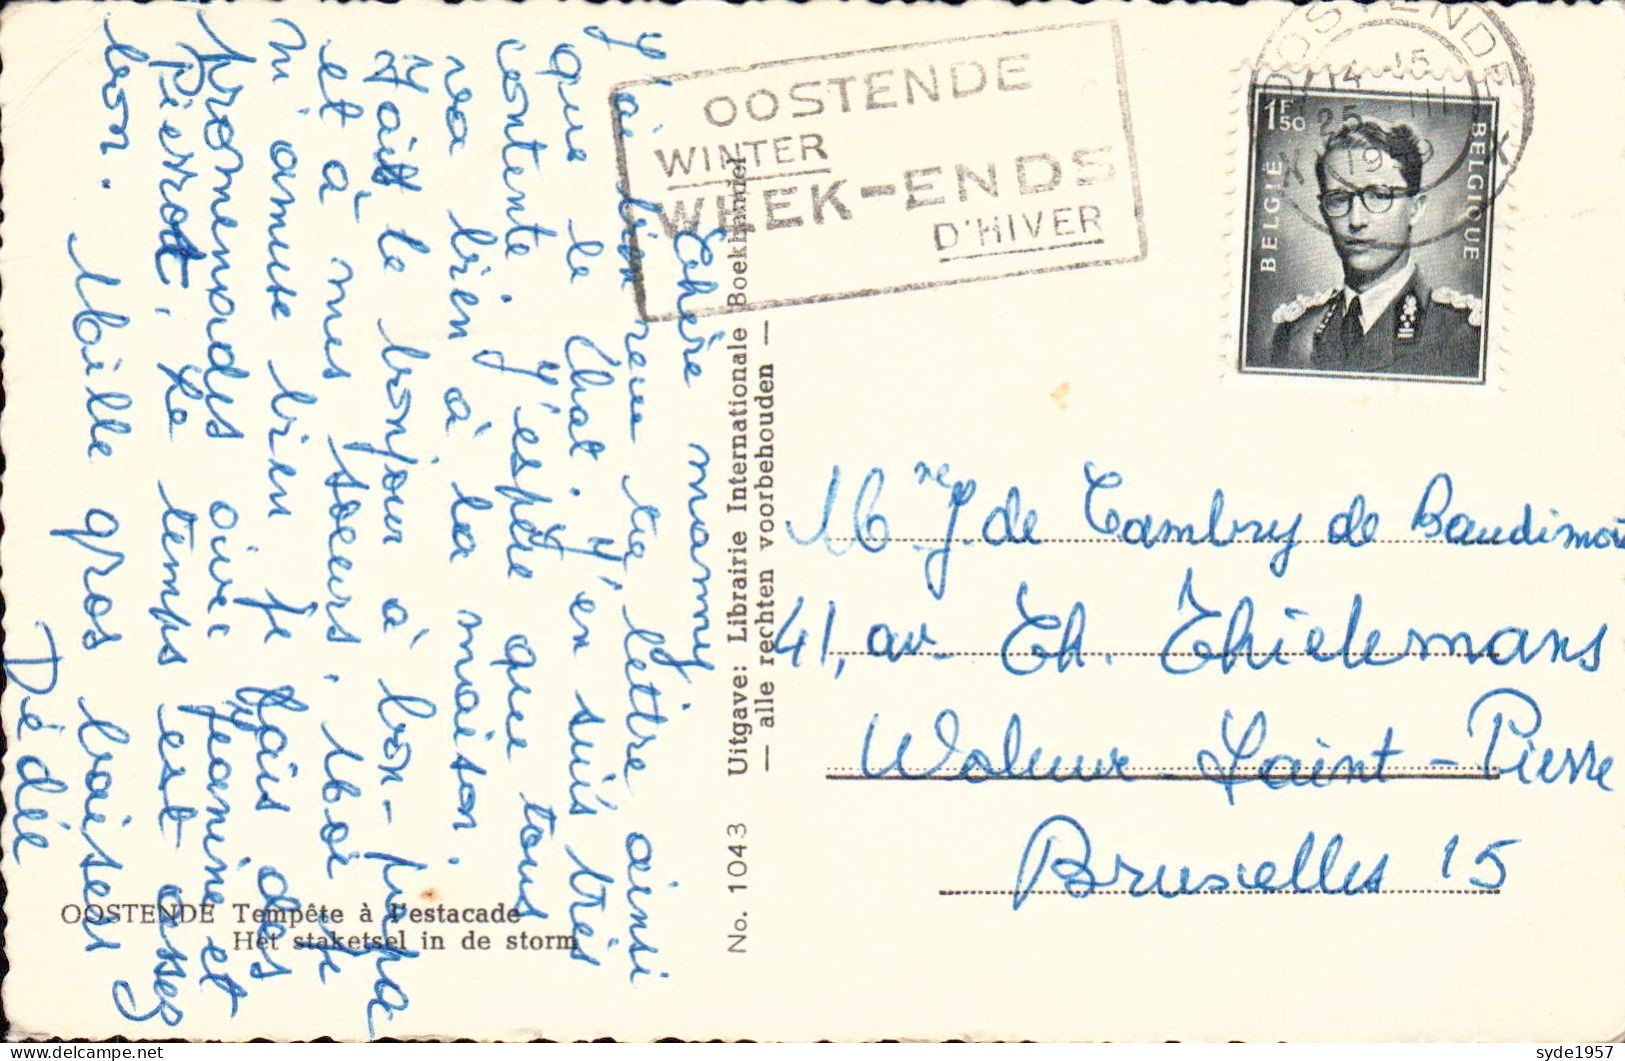 Chère mammy
J'ai bien reçu ta lettre ainsi
que le Chat. J'en suis très
contente. J'espère que tous
va bien à la maison.
Fait le bonjour à bon-papa
et à mes soeurs. Moi je
m'amuse bien je fais des
promenades avec Jeanine et
Pierrot. Le temps est assez
bon. Mille gros baisers
Dédée
OOSTENDE
WINTER
WEEK-ENDS
D'HIVER
OOSTENDE
14-15
25 III
1959
1F50
BELGIË
BELGIQUE
Mme J. de Cambry de Baudimont
41, av. Ch. Thielemans
Woluwe-Saint-Pierre
Bruxelles 15
No. 1043 Uitgave: Librairie Internationale Boekhandel
— alle rechten voorbehouden —
OOSTENDE Tempête à l'estacade
Het staketsel in de storm
syde1957